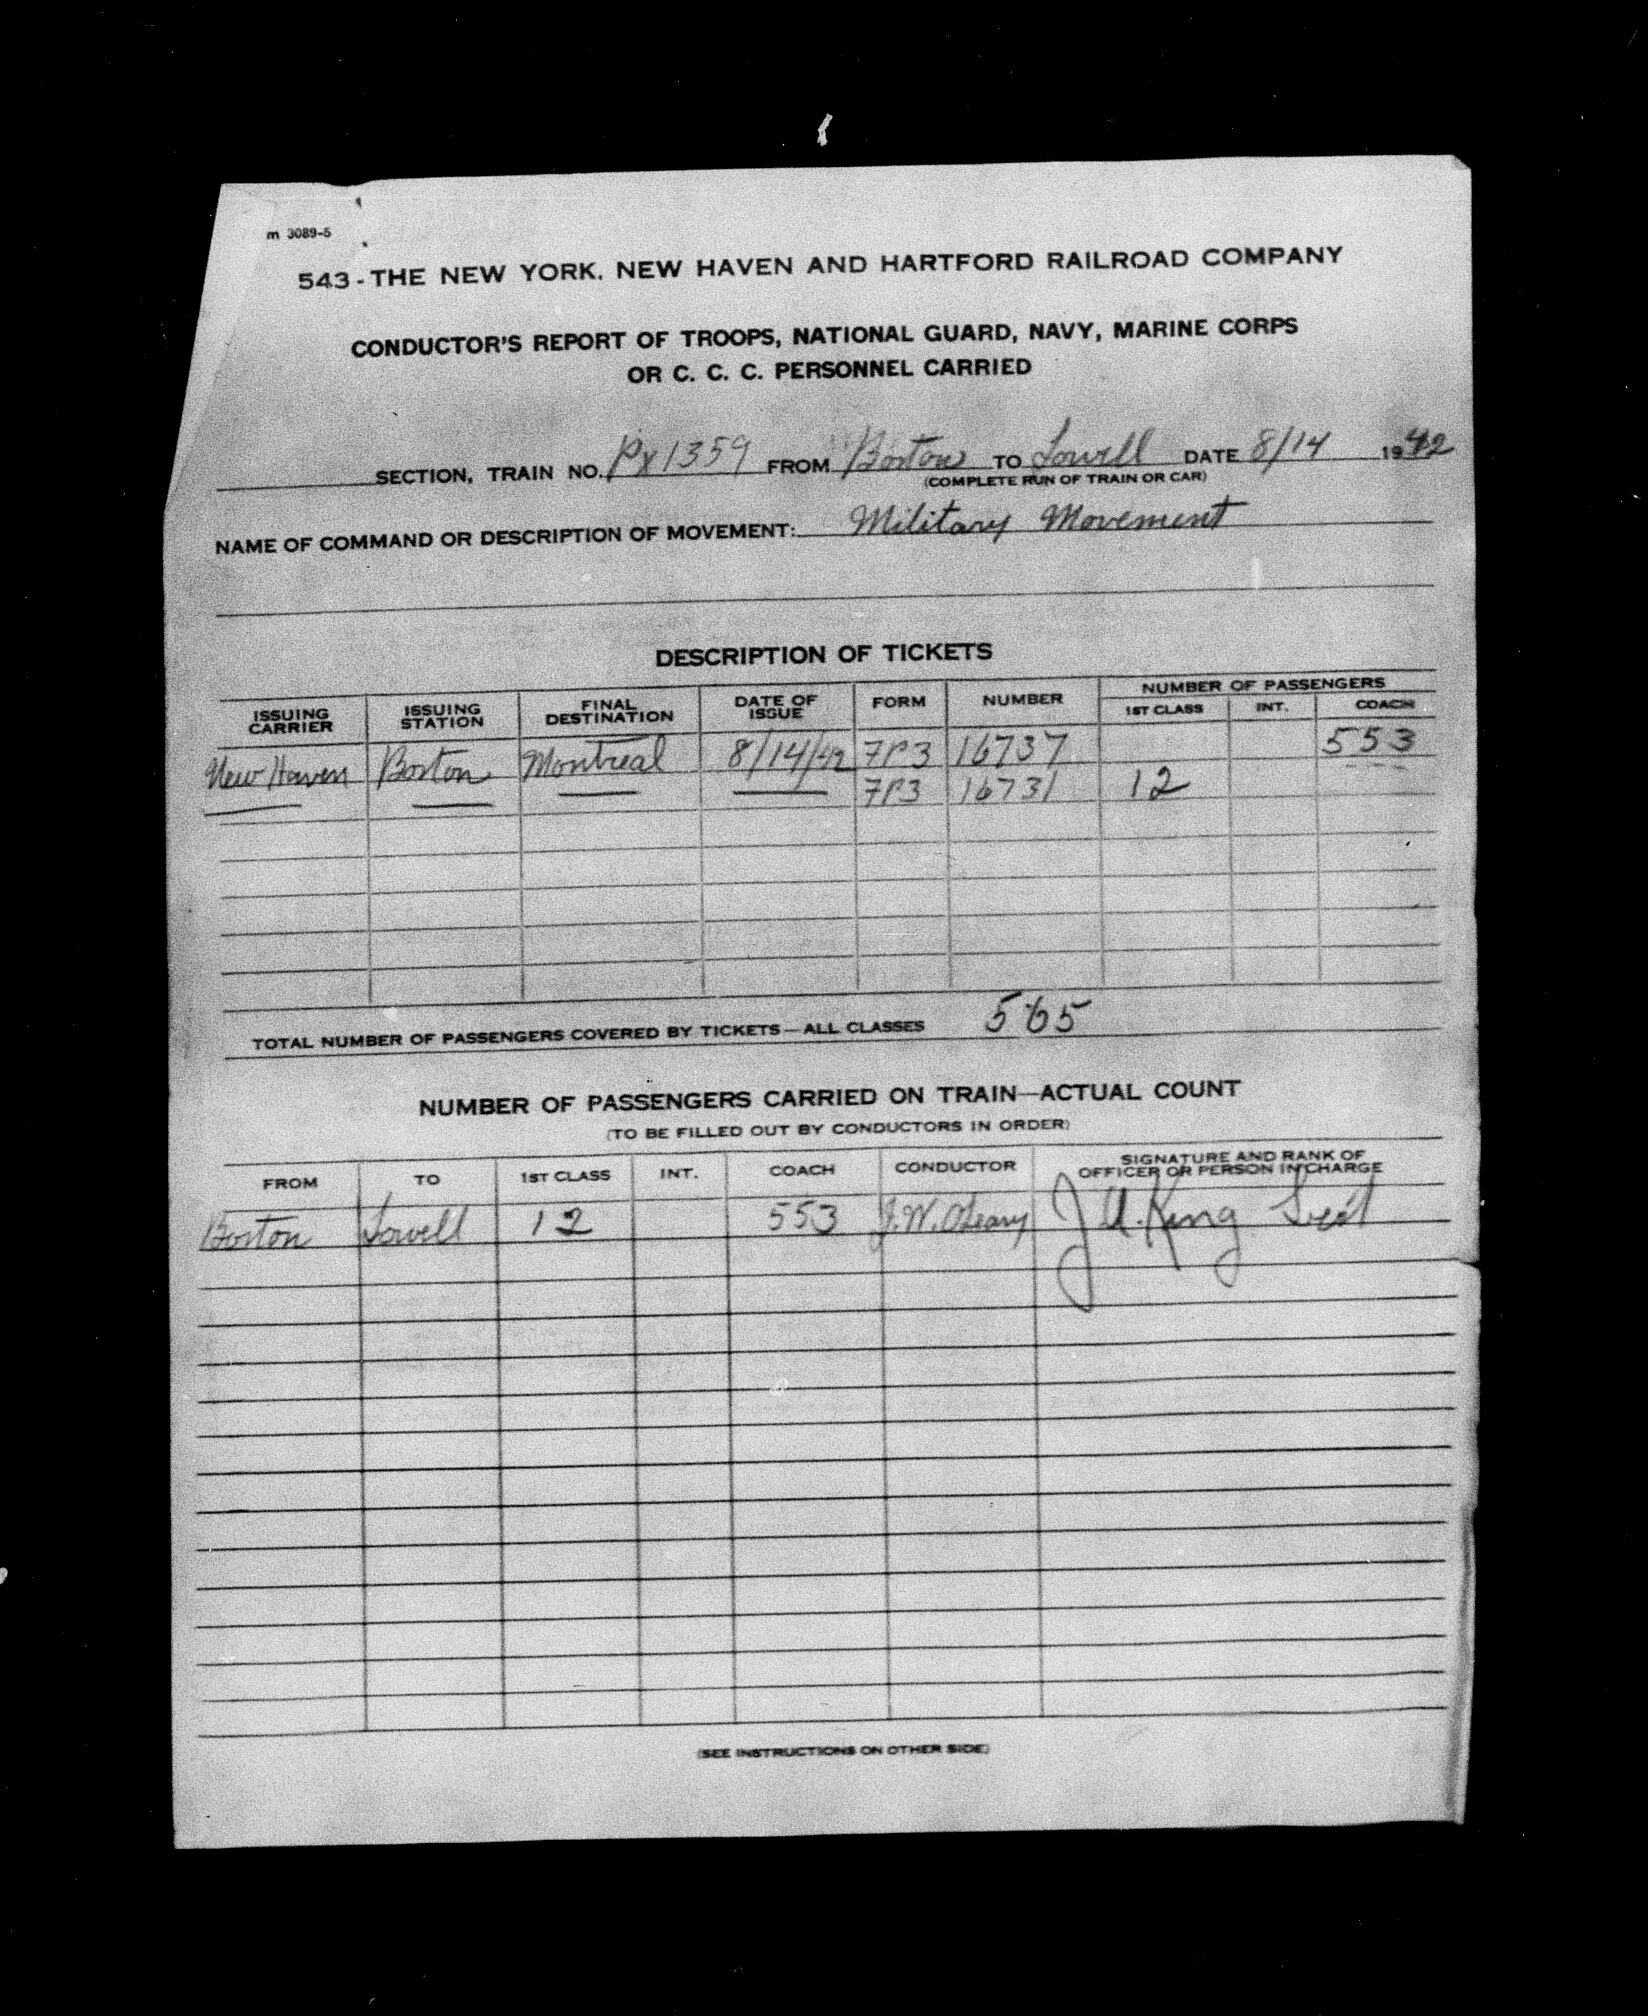 m 3089-5
543-THE NEW YORK, NEW HAVEN AND HARTFORD RAILROAD COMPANY
CONDUCTOR'S REPORT OF TROOPS, NATIONAL GUARD, NAVY, MARINE CORPS
OR C. C. C. PERSONNEL CARRIED
SECTION, TRAIN NO. Px1359 FROM Boston TO Lowell DATE 8/14 1942
(COMPLETE RUN OF TRAIN OR CAR)
NAME OF COMMAND OR DESCRIPTION OF MOVEMENT: Military Movement
DESCRIPTION OF TICKETS
ISSUING CARRIER ISSUING STATION FINAL DESTINATION DATE OF ISSUE FORM NUMBER NUMBER OF PASSENGERS
1ST CLASS INT. COACH
New Haven Boston Montreal 8/14/42 7P3 16737 553
7P3 16731 12
TOTAL NUMBER OF PASSENGERS COVERED BY TICKETS—ALL CLASSES 565
NUMBER OF PASSENGERS CARRIED ON TRAIN—ACTUAL COUNT
(TO BE FILLED OUT BY CONDUCTORS IN ORDER)
FROM TO 1ST CLASS INT. COACH CONDUCTOR SIGNATURE AND RANK OF OFFICER OR PERSON IN CHARGE
Boston Lowell 12 553 J.W. O'Leary King
(SEE INSTRUCTIONS ON OTHER SIDE)